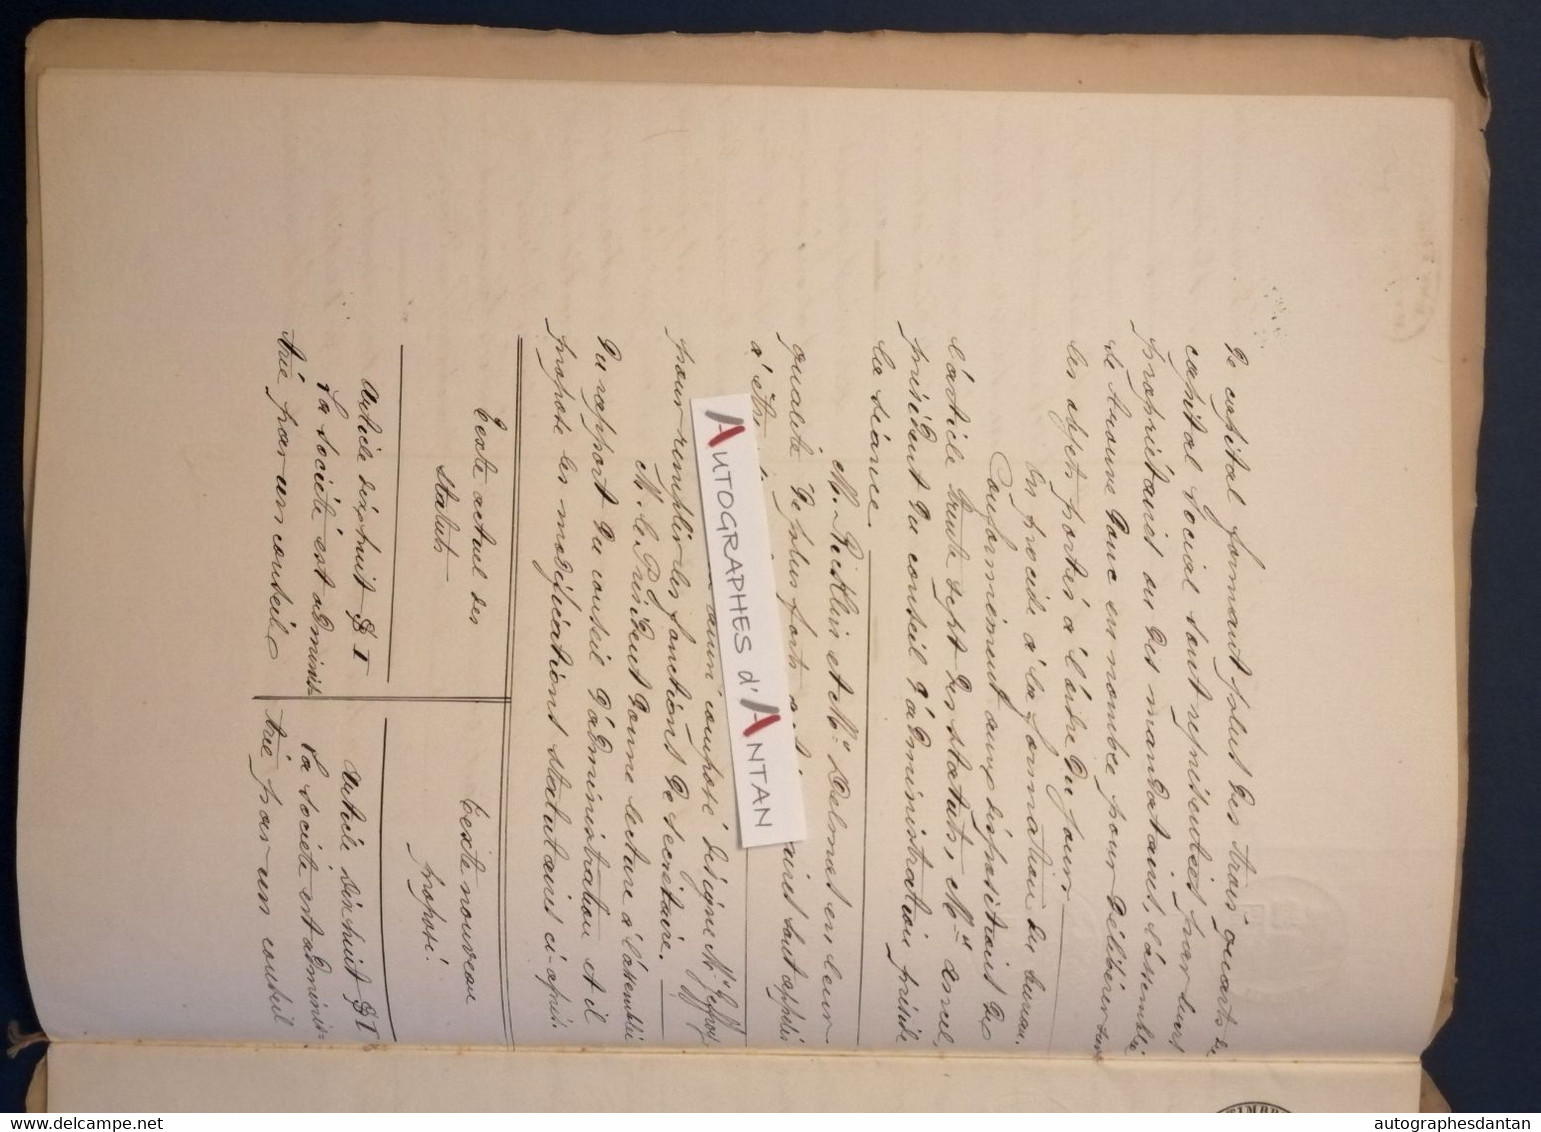 de capital formant plus des trois quarts du
capital social sont représentées par leurs
propriétaires ou des mandataires, l'assemblée
se trouve donc en nombre pour délibérer sur
les objets portés à l'ordre du jour.
On procède à la formation du bureau.
Conformément aux dispositions de
l'article trente sept des statuts, Mr Ancel,
président du conseil d'administration préside
la séance.
M. Ricklin et Mr Delmas en leur
qualité de plus forts sont appelés
pour remplir les fonctions de secrétaire.
composé désigne Mr Jeffroy
M. le Président donne lecture à l'assemblée
du rapport du conseil d'administration et il
propose les modifications statutaires ci-après.
Texte actuel des
statuts
Texte nouveau
proposé.
Article dixhuit § I
La société est adminis
trée par un conseil
Article dix huit § I
La société est adminis
trée par un conseil
AUTOGRAPHES d'ANTAN
TIMBRE
delcampe.net
autographesdantan